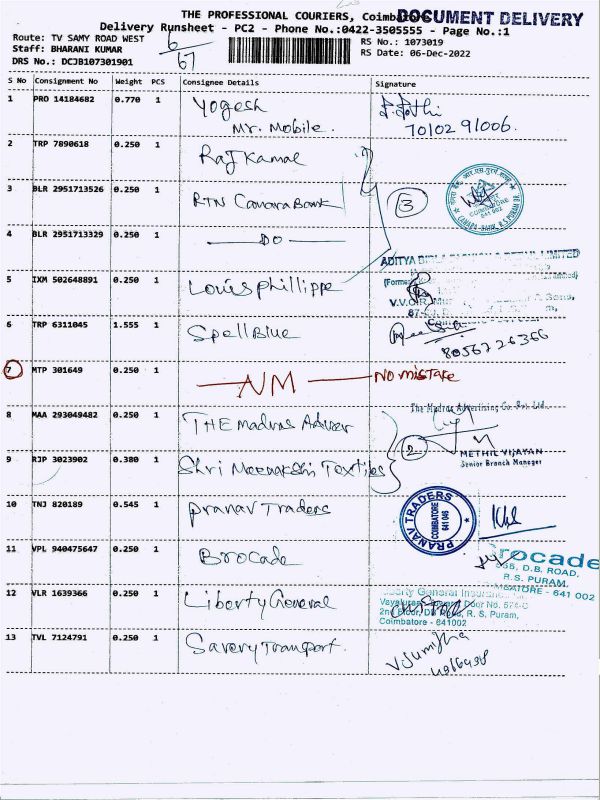 THE PROFESSIONAL COURIERS, Coimbatore
DOCUMENT DELIVERY
Delivery Runsheet - PC2 - Phone No.:0422-3505555 - Page No.:1
Route: TV SAMY ROAD WEST
Staff: BHARANI KUMAR
DRS No.: DCJB107301901
6/67
RS No.: 1073019
RS Date: 06-Dec-2022
S No Consignment No Weight PCS Consignee Details Signature
1 PRO 14184682 0.770 1 Yogesh
Mr. Mobile. 7010291006.
2 TRP 7890618 0.250 1 Raj Kamal
3 BLR 2951713526 0.250 1 RTN Canara Bank 3
COIMBATORE
641 002
CANARA BANK, R.S PURAM
4 BLR 2951713329 0.250 1 — DO —
ADITYA BIRLA FASHION & RETAIL LIMITED
5 IXM 502648891 0.250 1 Louis Phillippe
6 TRP 6311045 1.555 1 Spell Blue
8056726366
7 MTP 301649 0.250 1 — NM — NO MISTAKE
8 MAA 293049482 0.250 1 THE Madras Adver
The Madras Advertising Co. Pvt. Ltd.
2
METHIL VIJAYAN
Senior Branch Manager
9 RJP 3023902 0.380 1 Shri Meenakshi Textiles
10 TNJ 820189 0.545 1 Pranav Traders
PRANAV TRADERS
COIMBATORE
11 VPL 940475647 0.250 1 Brocade
Brocade
D.B. ROAD,
R.S. PURAM,
COIMBATORE - 641 002
12 VLR 1639366 0.250 1 Liberty General
Liberty General Insurance
Door No. 574-C
2nd Floor, DB Road, R.S. Puram,
Coimbatore - 641002
13 TVL 7124791 0.250 1 Savery Transport.